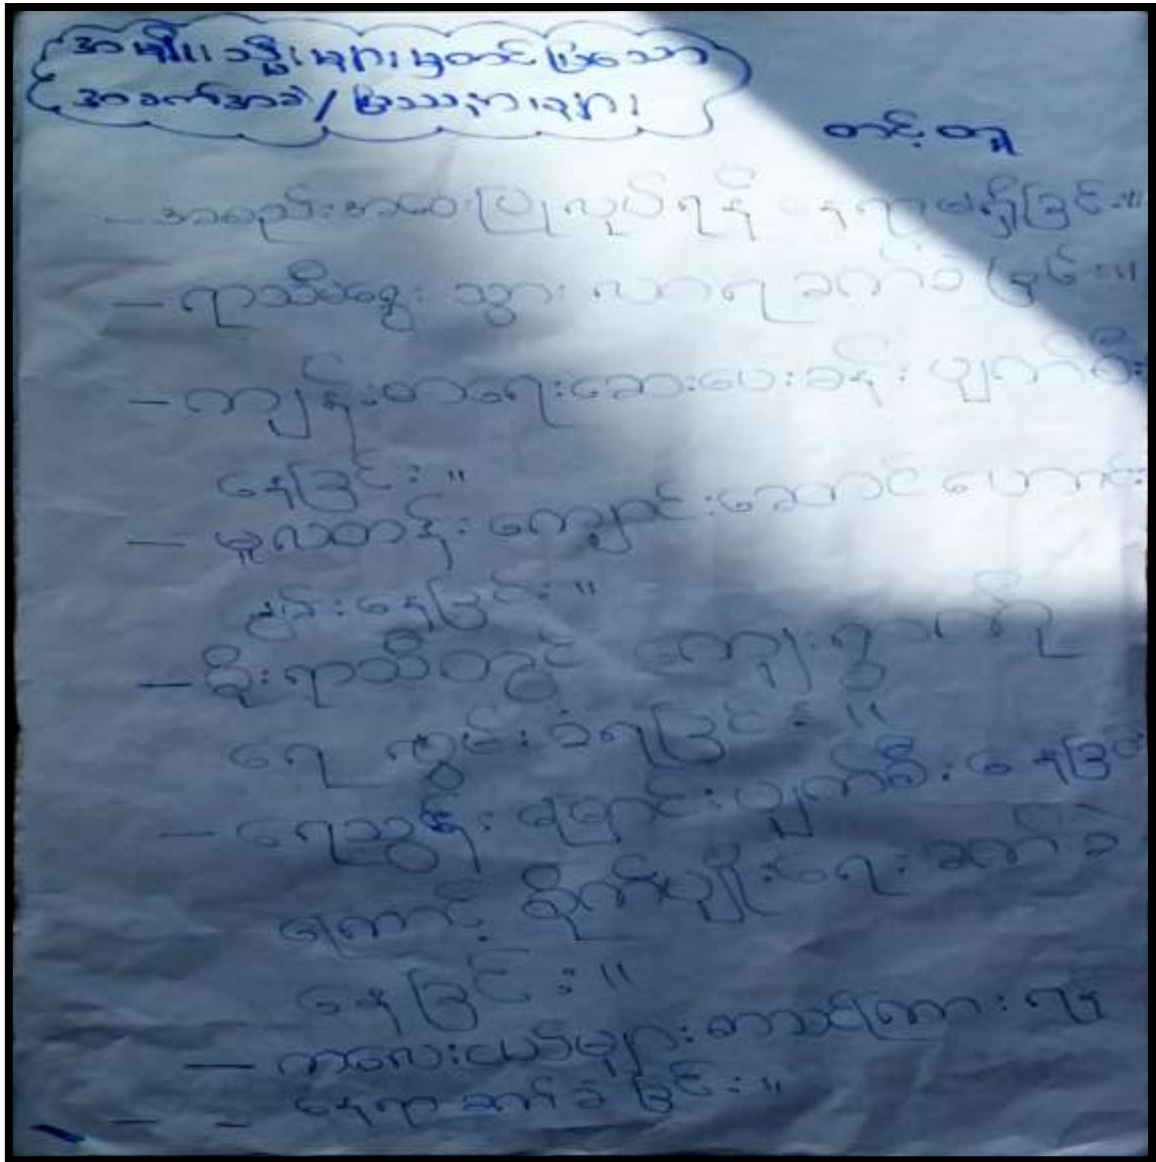 အမျိုးသမီးများမှတင်ပြသော
အခက်အခဲ/ပြဿနာများ
တင့်တူ
– အစည်းအဝေးပြုလုပ်ရန် နေရာမရှိခြင်း။
– ရာသီမရွေး သွားလာရ ခက်ခဲခြင်း။
– ကျန်းမာရေးဆေးပေးခန်း ပျက်စီး
နေခြင်း။
– မူလတန်းကျောင်းဆောင် ဟောင်း
နွမ်းနေခြင်း။
– မိုးရာသီတွင် ကျေးရွာ
ရေ လွှမ်းခံရခြင်း။
– ရေသွန်းမြောင်းပျက်စီးနေခြင်
ကြောင့် စိုက်ပျိုးရေး ခက်ခဲ
နေခြင်း။
– ကလေးငယ်များစာသင်ကြားရန်
နေရာခက်ခဲခြင်း။